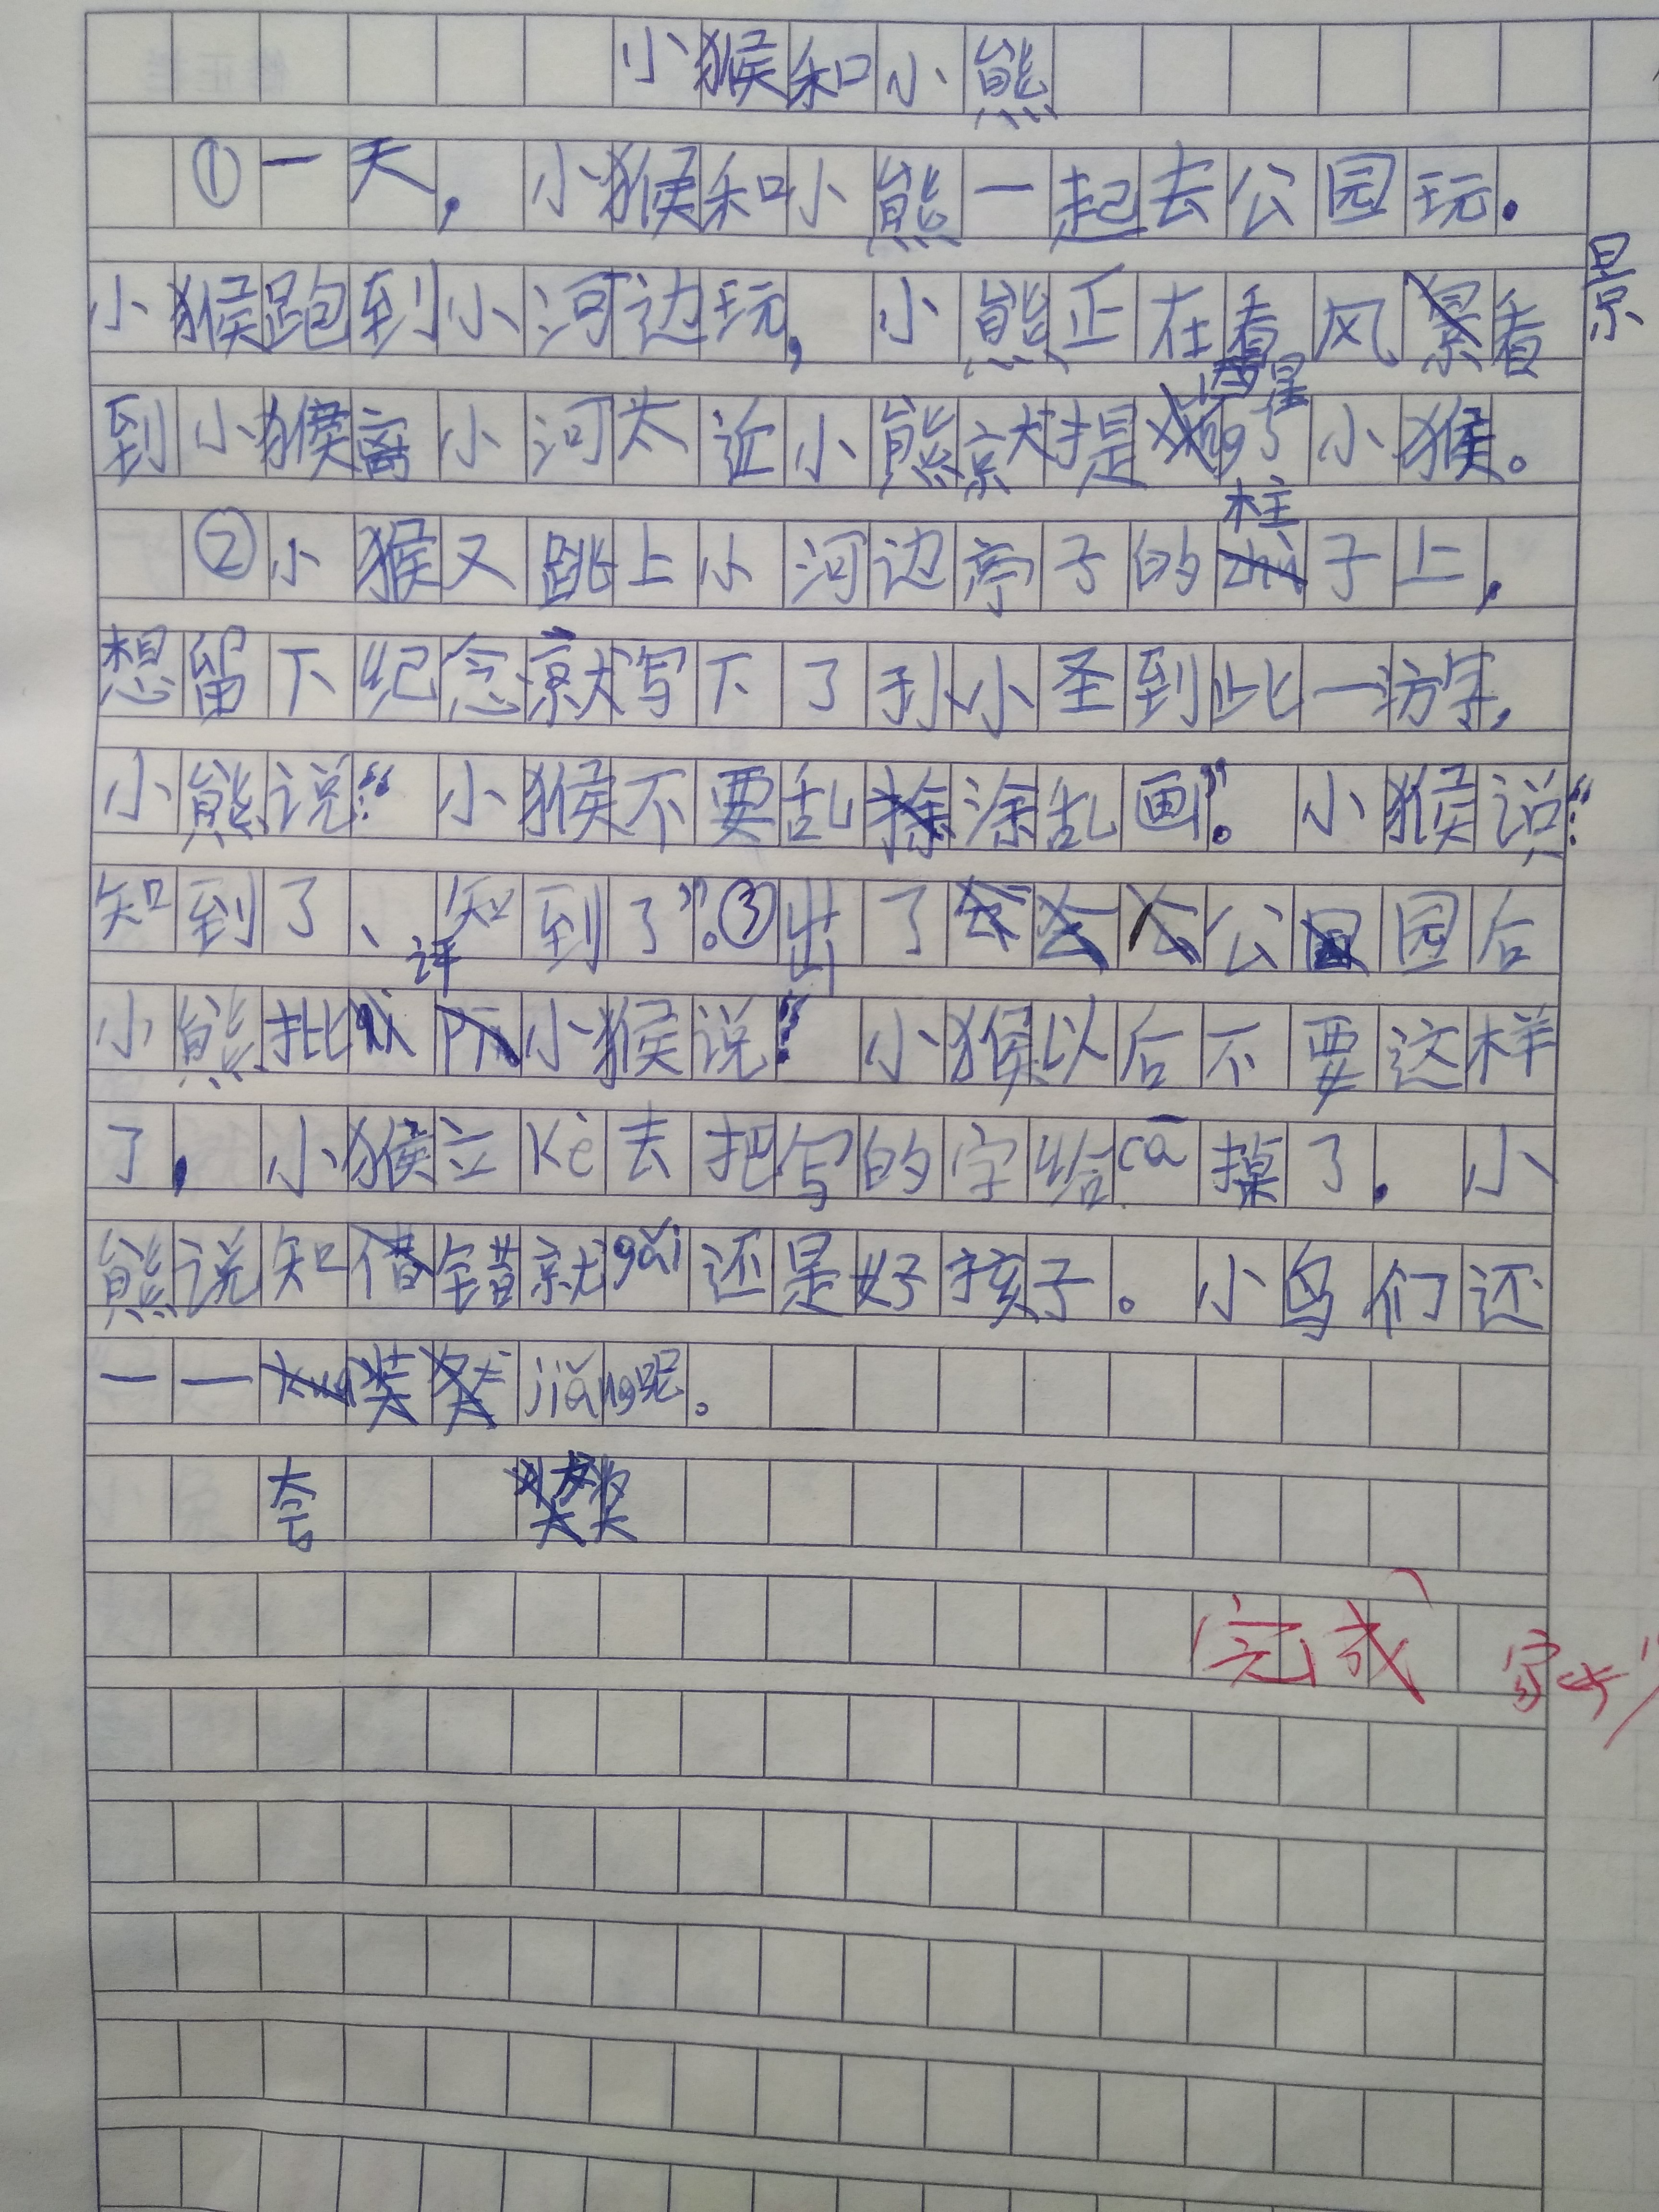 小猴和小熊
①一天，小猴和小熊一起去公园玩.
小猴跑到小河边玩，小熊正在看风景看
到小猴离小河太近小熊就提醒了小猴。
②小猴又跳上小河边亭子的柱子上，
想留下纪念就写下了孙小圣到此一字，
小熊说：“小猴不要乱涂乱画”。小猴说：“
知到了、知到了”。③出了公园后
小熊批评小猴说：“小猴以后不要这样
了. 小猴立kè去把写的字给cā掉了. 小
熊说知错就gǎi还是好孩子。小鸟们还
一一jiǎng呢。
夸 奖
完成